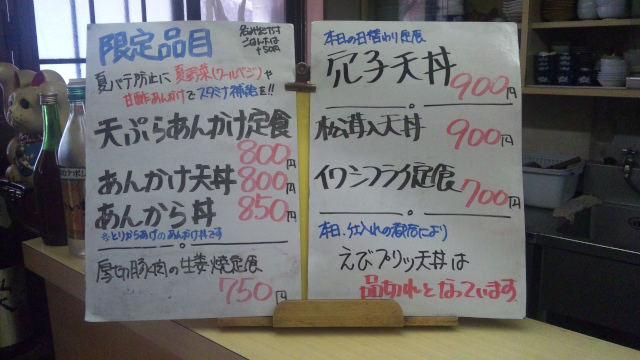 限定品目
ごはんは
+50円
夏バテ防止に夏野菜(クールベジ)や
甘酢あんかけでスタミナ補給を!!
天ぷらあんかけ定食
800円
あんかけ天丼 800円
あんから丼 850円
とりからあげのあんかけ丼です
厚切豚肉の生姜焼定食
750円
本日の日替わり定食
穴子天丼 900円
松茸入天丼 900円
イワシフライ定食 700円
本日、仕入れの都合により
えびプリッ天丼は
品切れとなっています